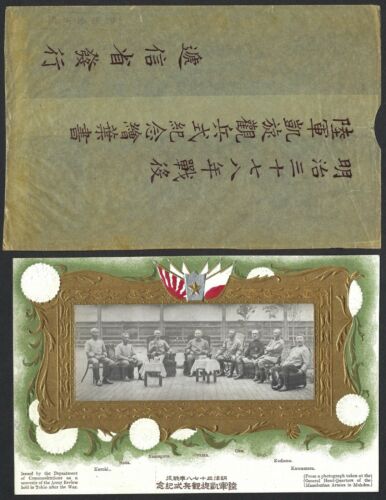 明治三十七八年戰役
陸軍凱旋觀兵式紀念繪葉書
遞信省發行
Kuroki.
Nozu.
Yamagata.
Oyama.
Oku.
Kodama.
Kawamura.
Issued by the Department
of Communications as a
souvenir of the Army Review
held in Tokio after the War.
明治三十七八年戰役
陸軍凱旋觀兵式紀念
(From a photograph taken at the
General Head-Quarters of the
Manchurian Armies in Mukden.)